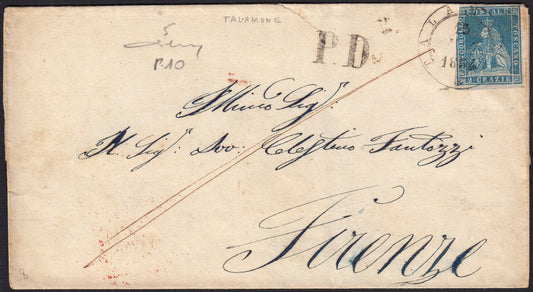 TALAMONE
5
P.10
P.D.
TALA
5
1852
FRANCOBOLLO POSTALE TOSCANO
2 CRAZIE
Illmo Sigr:
Il Sigr: Avv: Celestino Fantozzi
Firenze
8